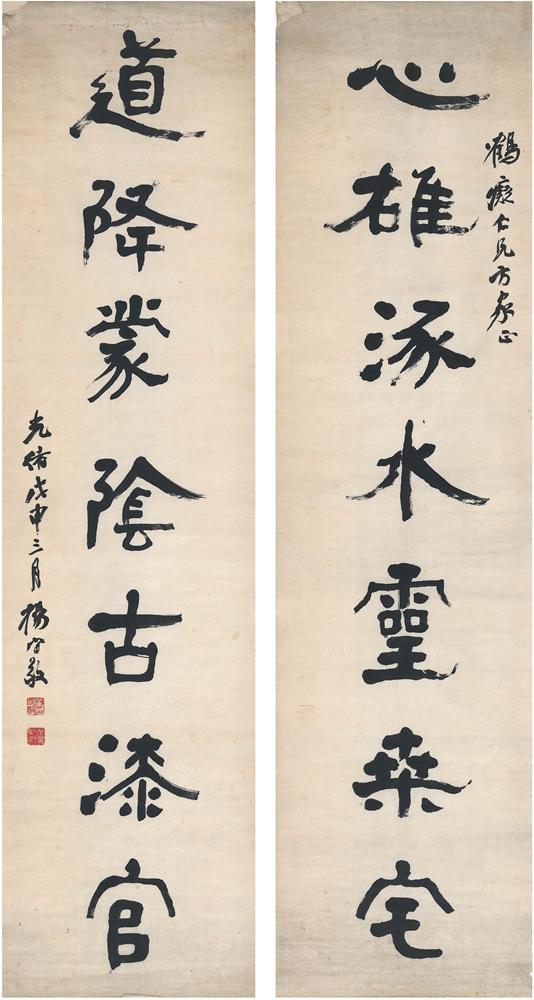 心雄涿水靈桑宅
鶴癡仁兄方家正
道降蒙陰古漆官
光緒戊申三月楊守敬